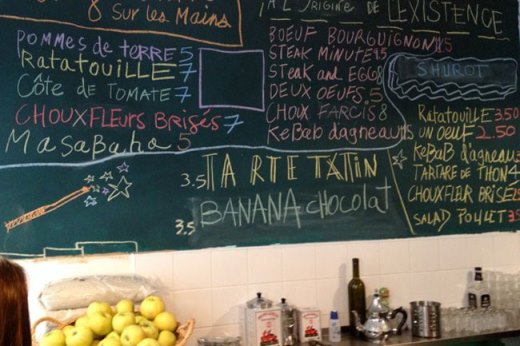 8 SUR les MAINS
POMMES de TERRE 5
RATATOUILLE 7
CÔTE DE TOMATE 7
CHOUXFLEURS BRISÉS 7
MASABAHA 5
À L'ORIGINE DE L'EXISTENCE
BOEUF BOURGUIGNON
STEAK MINUTE
STEAK AND EGG 8
DEUX OEUFS. 5
CHOUX FARCIS 8
KEBAB d'agneau
SHUROT
RATATOUILLE 3.50
UN OEUF 2.50
KEBAB d'agneau
TARTARE DE THON 4
CHOUXFLEUR BRISÉ
SALAD POULET
3.5 TARTE TATIN
3.5 BANANA chocolat